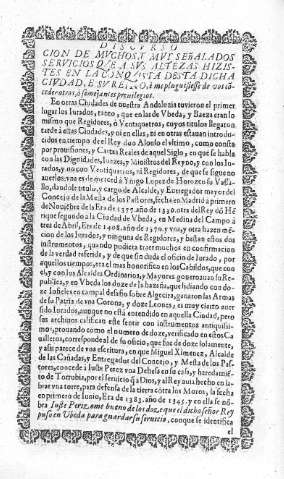 DISCURSO
CION DE MUCHOS, Y MUY SEÑALADOS
SERVICIOS QVE A SVS ALTEZAS HIZIS-
TES EN LA CONQVISTA DESTA DICHA
CIVDAD, E SV REYNO, è me
En otras Ciudades de nuestra Andalucia tuvieron el primer
lugar los Jurados, tanto, que en las de Vbeda, y Baeza eran lo
mismo que Regidores, ò Veintiquatros, cuyos titulos llegaron
tarde à estas Ciudades, y ni en ellas, ni en otras estavan intro du-
cidos en tiempo del Rey don Alonso el vltimo, como consta
por provisiones, y Cartas Reales de aquel Siglo, en que se habla
con las Dignidades, Juezes, y Ministros del Reyno, y con los Ju-
rados, y no con Veintiquatros, ni Regidores, de que se sugeto
nueva es de decreto à Yñigo Lopez de Horozco su Vassa-
llo, dandole titulo, y cargo de Alcalde, y Entregador mayor del
Concejo de la Mesta de los Pastores, fecha en Madrid à primero
de Noviembre de la Era 1377. año de 1339. otra del Rey dõ Hẽ-
rique segundo à la Ciudad de Vbeda, en Medina del Campo à
tres de Abril, Era de 1408. año de 1370. y otra hazen mẽ-
cion de los Jurados, y ninguna de Regidores, y destos dos
instrumentos, quando pudiera traer muchos en confirmacion
de la verdad referida, y de que sin duda el oficio de Jurado, por
aquellos tiempos, era el mas honorifico en los Cabildos, que con
el, y con los Alcaldes Ordinarios, y Mayores governavan su Re-
publica, y en Vbeda los doze de la hazaña, que lidiando con do-
ze Infieles en campal desafio sobre Algecira, ganaron las Armas
de su Patria de vna Corona, y doze Leones, es muy cierto aver
sido Jurados, aunque no està entendido en aquella Ciudad, pero
sus archivos califican este sentir con instrumentos antiquissi-
mos, provando como el numero de doze, verificado en estos Ca-
valleros, correspondia al de su oficio, que fue de doze solamente,
y assi parece de vna escritura, en que Miguel Ximenez, Alcalde
de las Cañadas, y Entregador del Concejo, y Mesta de los Pas-
tores, concede à Juste Perez vna Dehesa en cosas, y heredamien-
to de Torrubia, por el servicio q̃ a Dios, y al Rey avia hecho en la-
brar vna torre, para defensa de la tierra contra los Moros, la fecha
en primero de Iunio, Era de 1383. año de 1345. y en ella se nõ-
bra Juste Perez, ome bueno de los doze, que el dicho señor Rey
puso en Vbeda para guardar su servicio, con que se identifica
el